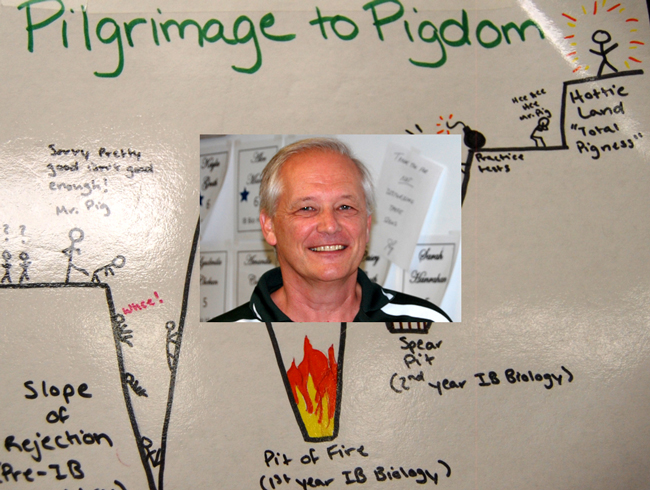 Pilgrimage to Pigdom
Hee Hee
Hee
Mr. Pig
Hottie
Land
"Total
Pigness"
Practice
tests
Sorry Pretty
good isn't good
enough!
Mr. Pig
? ?
whee!
6
5
Sarah
Hanrahan
Slope
of
Rejection
Pre-IB
Spear
Pit
(2nd year IB Biology)
Pit of Fire
(1st year IB Biology)